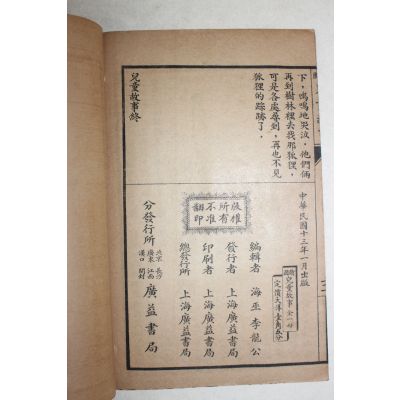 下，嗚嗚地哭泣，他們倆
再到樹林裡去找那狐狸，
可是各處尋到，再也不見
狐狸的踪跡了．
兒童故事終
中華民國十三年一月出版
兒童故事 全一册
定價大洋壹角五分
編輯者 海巫李龍公
發行者 上海廣益書局
印刷者 上海廣益書局
總發行所 上海廣益書局
版權所有不准翻印
分發行所 北京 廣東 漢口 長沙 江西 開封 廣益書局